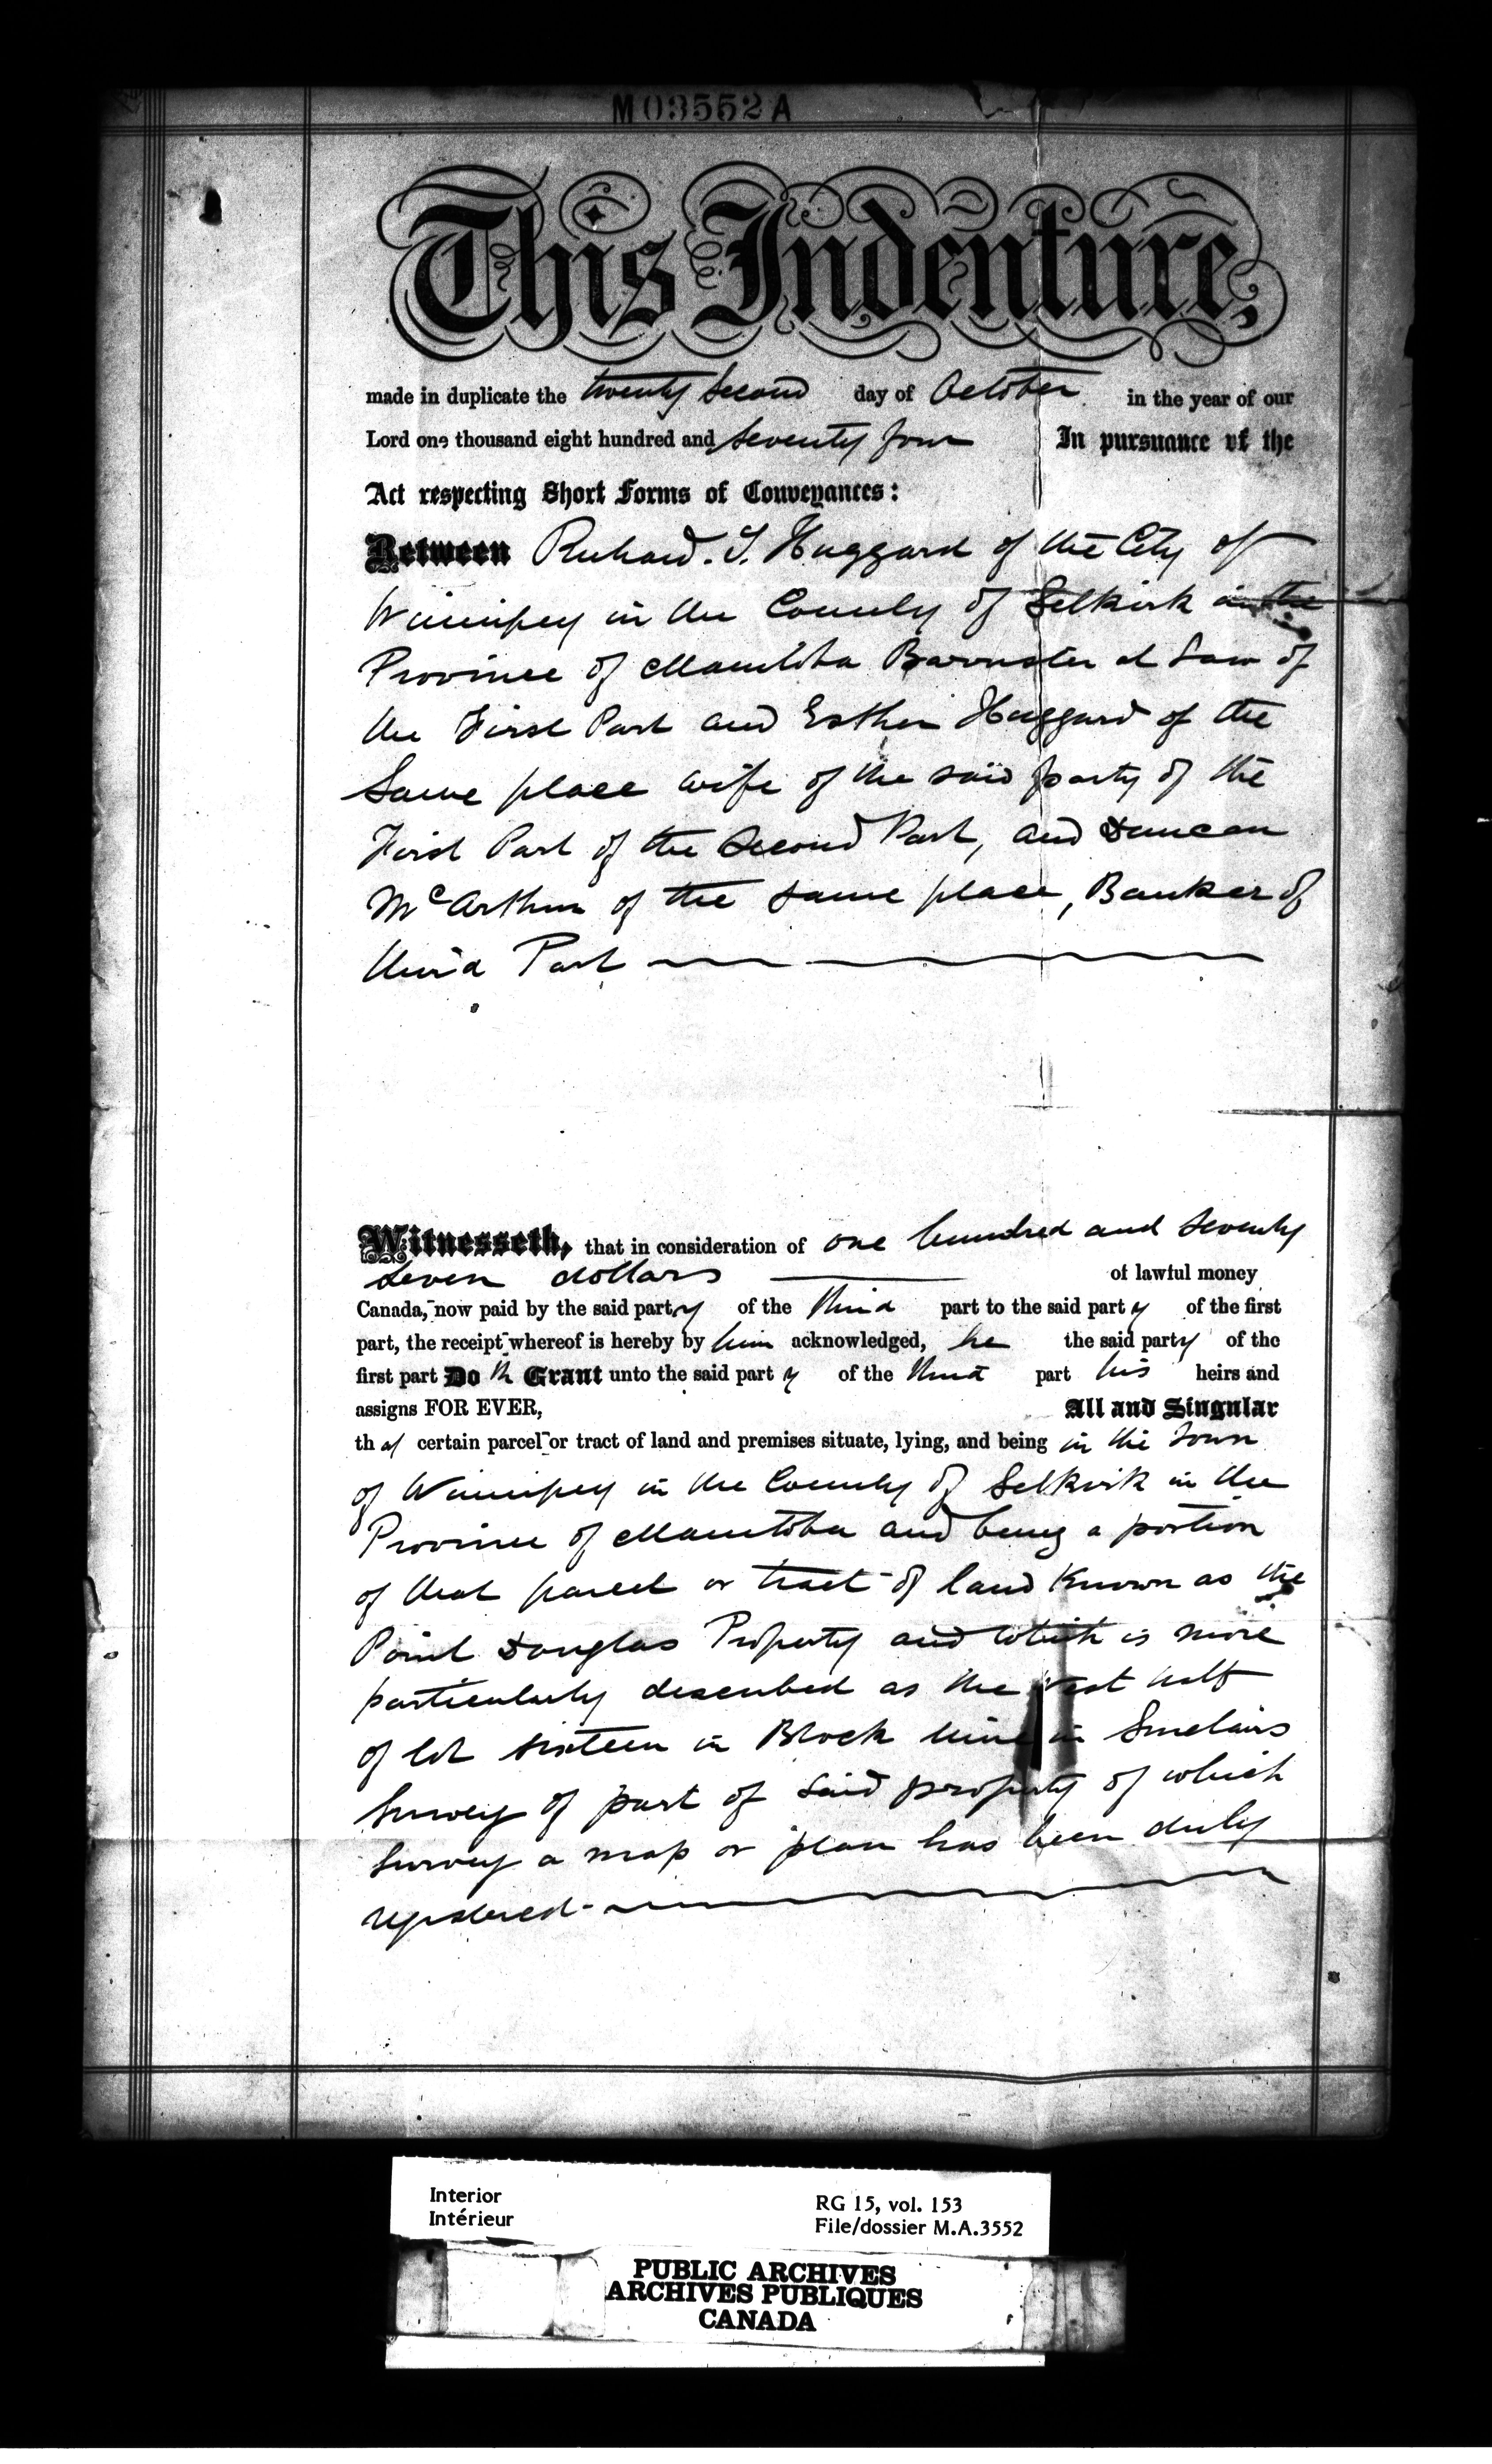 M03552A
This Indenture,
made in duplicate the twenty second day of October in the year of our
Lord one thousand eight hundred and seventy four In pursuance of the
Act respecting Short Forms of Conveyances:
Between Richard. T. Huggard of the City of
Winnipeg in the County of Selkirk in the
Province of Manitoba Barrister at Law of
the First Part and Esther Huggard of the
Same place wife of the said party of the
First Part of the Second Part, and Duncan
McArthur of the same place, Banker of
third Part
Witnesseth, that in consideration of one hundred and seventy
seven dollars of lawful money
Canada, now paid by the said party of the third part to the said party of the first
part, the receipt whereof is hereby by him acknowledged, he the said party of the
first part Doth Grant unto the said party of the third part his heirs and
assigns FOR EVER, All and Singular
that certain parcel or tract of land and premises situate, lying, and being in the Town
of Winnipeg in the County of Selkirk in the
Province of Manitoba and being a portion
of that parcel or tract of land known as the
Point Douglas Property and which is more
particularly described as the half
of lot sixteen in Block nine in Sinclairs
Survey of part of said property of which
Survey a map or plan has been duly
registered
Interior
Intérieur
RG 15, vol. 153
File/dossier M.A.3552
PUBLIC ARCHIVES
ARCHIVES PUBLIQUES
CANADA